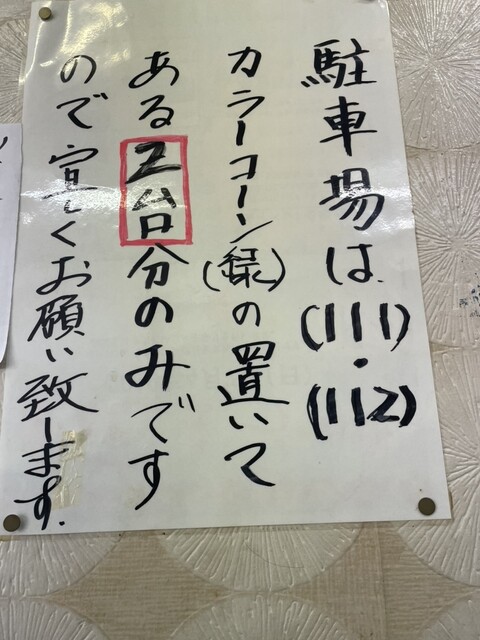 駐車場は(111)・(112)
カラーコーン(緑)の置いて
ある2台分のみです
ので宜しくお願い致します.